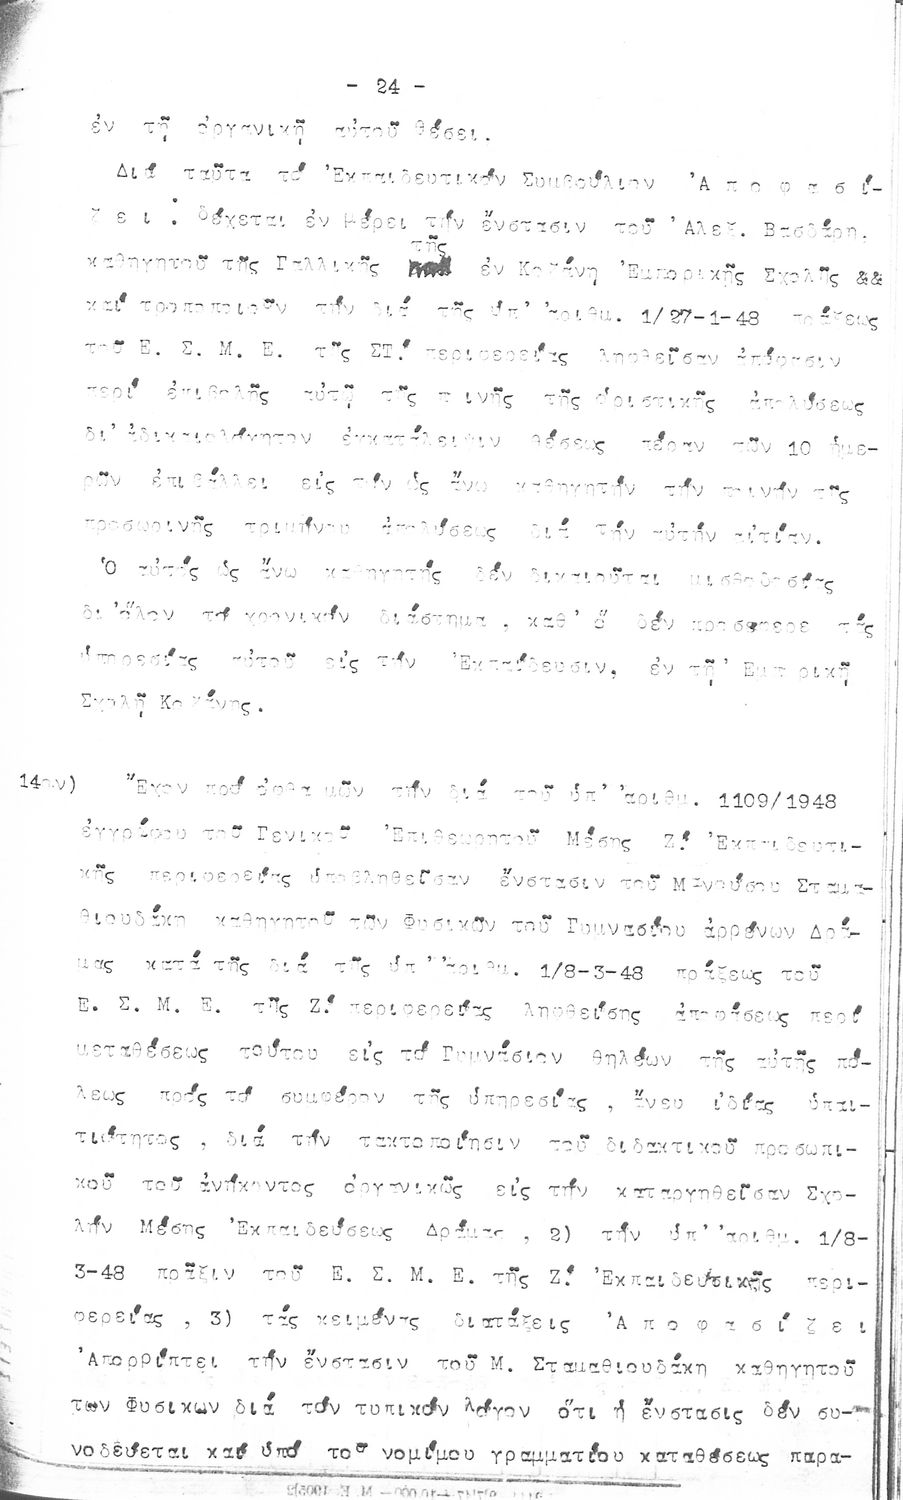 - 24 -
ἐν τῇ ὀργανικῇ αὐτοῦ θέσει.
Διά ταῦτα τό Ἐκπαιδευτικόν Συμβούλιον Ἀ π ο φ α σ ί-
ζ ε ι : δέχεται ἐν μέρει τήν ἔνστασιν τοῦ Ἀλεξ. Βασδάρη,
τῆς
καθηγητοῦ τῆς Γαλλικῆς ἐν Κοζάνῃ Ἐμπορικῆς Σχολῆς &&
καί τροποποιοῦν τήν διά τῆς ὑπ' ἀριθμ. 1/27-1-48 πράξεως
τοῦ Ε. Σ. Μ. Ε. τῆς ΣΤ! περιφερείας ληφθεῖσαν ἀπόφασιν
περί ἐπιβολῆς αὐτῷ τῆς ποινῆς τῆς ὁριστικῆς ἀπολύσεως
δι' ἀδικαιολόγητον ἐγκατάλειψιν θέσεως πέραν τῶν 10 ἡμε-
ρῶν ἐπιβάλλει εἰς τόν ὡς ἄνω καθηγητήν τήν ποινήν τῆς
προσωρινῆς τριμήνου ἀπολύσεως διά τήν αὐτήν αἰτίαν.
Ὁ αὐτός ὡς ἄνω καθηγητής δέν δικαιοῦται μισθοδοσίας
δι' ὅλον τό χρονικόν διάστημα , καθ' ὅ δέν προσέφερε τάς
ὑπηρεσίας αὐτοῦ εἰς τήν Ἐκπαίδευσιν, ἐν τῇ Ἐμπορικῇ
Σχολῇ Κοζάνης.
14ον) Ἔχον πρό ὀφθαλμῶν τήν διά τοῦ ὑπ' ἀριθμ. 1109/1948
ἐγγράφου τοῦ Γενικοῦ Ἐπιθεωρητοῦ Μέσης Ζ! Ἐκπαιδευτι-
κῆς περιφερείας ὑποβληθεῖσαν ἔνστασιν τοῦ Μανούσου Σταμα-
θιουδάκη καθηγητοῦ τῶν Φυσικῶν τοῦ Γυμνασίου ἀρρένων Δρά-
μας κατά τῆς διά τῆς ὑπ' ἀριθμ. 1/8-3-48 πράξεως τοῦ
Ε. Σ. Μ. Ε. τῆς Ζ! περιφερείας ληφθείσης ἀποφάσεως περί
μεταθέσεως τούτου εἰς τό Γυμνάσιον θηλέων τῆς αὐτῆς πό-
λεως πρός τό συμφέρον τῆς ὑπηρεσίας , ἄνευ ἰδίας ὑπαι-
τιότητος , διά τήν τακτοποίησιν τοῦ διδακτικοῦ προσωπι-
κοῦ τοῦ ἀνήκοντος ὀργανικῶς εἰς τήν καταργηθεῖσαν Σχο-
λήν Μέσης Ἐκπαιδεύσεως Δράμας , 2) τήν ὑπ' ἀριθμ. 1/8-
3-48 πρᾶξιν τοῦ Ε. Σ. Μ. Ε. τῆς Ζ! Ἐκπαιδευτικῆς περι-
φερείας , 3) τάς κειμένας διατάξεις Ἀ π ο φ α σ ί ζ ε ι
Ἀπορρίπτει τήν ἔνστασιν τοῦ Μ. Σταμαθιουδάκη καθηγητοῦ
των Φυσικων διά τόν τυπικόν λόγον ὅτι ἡ ἔνστασις δέν συ-
νοδεύεται καί ὑπό του νομίμου γραμματίου καταθέσεως παρα-